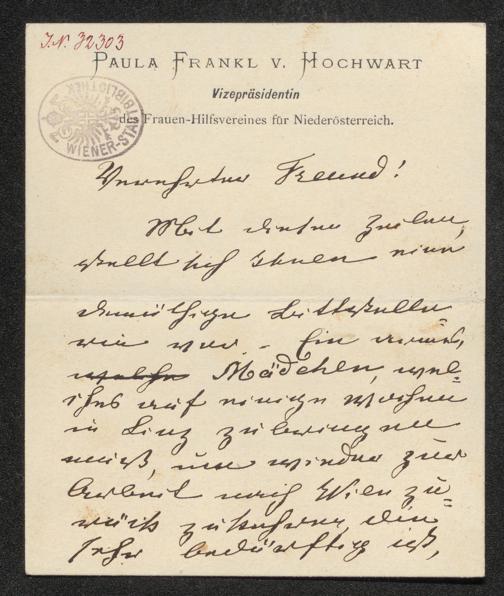 J.N. 32303
PAULA FRANKL V. HOCHWART
Vizepräsidentin
des Frauen-Hilfsvereines für Niederösterreich.
WIENER-STADTBIBLIOTHEK
Verehrter Freund!
Mit diesen Zeilen,
stellt sich Ihnen eine
demüthige Bittstelle
rin vor. - Ein armes,
welche Mädchen, wel=
ches auf einige Wochen
in Linz zubringen
muß, um wieder zur
Arbeit nach Wien zu=
rück zukehren, die
sehr bedürftig ist,